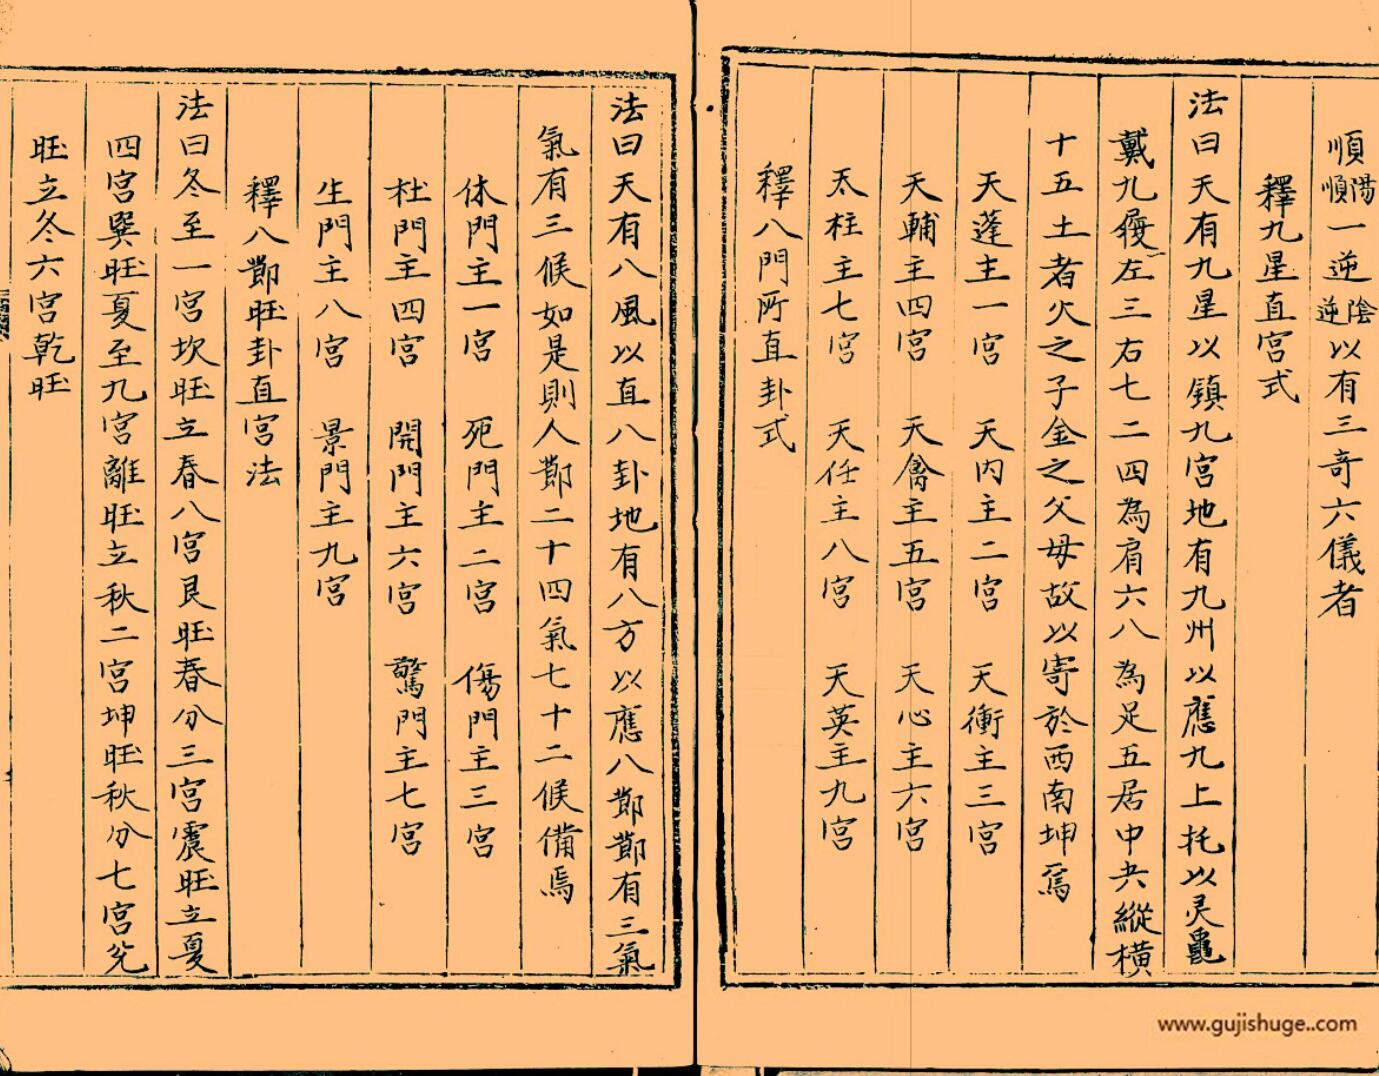 順陽順一逆陰逆以有三奇六儀者
釋九星直宮式
法曰天有九星以鎮九宮地有九州以應九上托以灵龜
戴九履左三右七二四為肩六八為足五居中央縱橫
十五土者火之子金之父母故以寄於西南坤焉
天蓬主一宮 天内主二宮 天衝主三宮
天輔主四宮 天禽主五宮 天心主六宮
天柱主七宮 天任主八宮 天英主九宮
釋八門所直卦式
法曰天有八風以直八卦地有八方以應八節節有三氣
氣有三候如是則人節二十四氣七十二候備焉
休門主一宮 死門主二宮 傷門主三宮
杜門主四宮 開門主六宮 驚門主七宮
生門主八宮 景門主九宮
釋八節旺卦直宮法
法曰冬至一宮坎旺立春八宮艮旺春分三宮震旺立夏
四宮巽旺夏至九宮離旺立秋二宮坤旺秋分七宮兊
旺立冬六宮乾旺
www.gujishuge..com